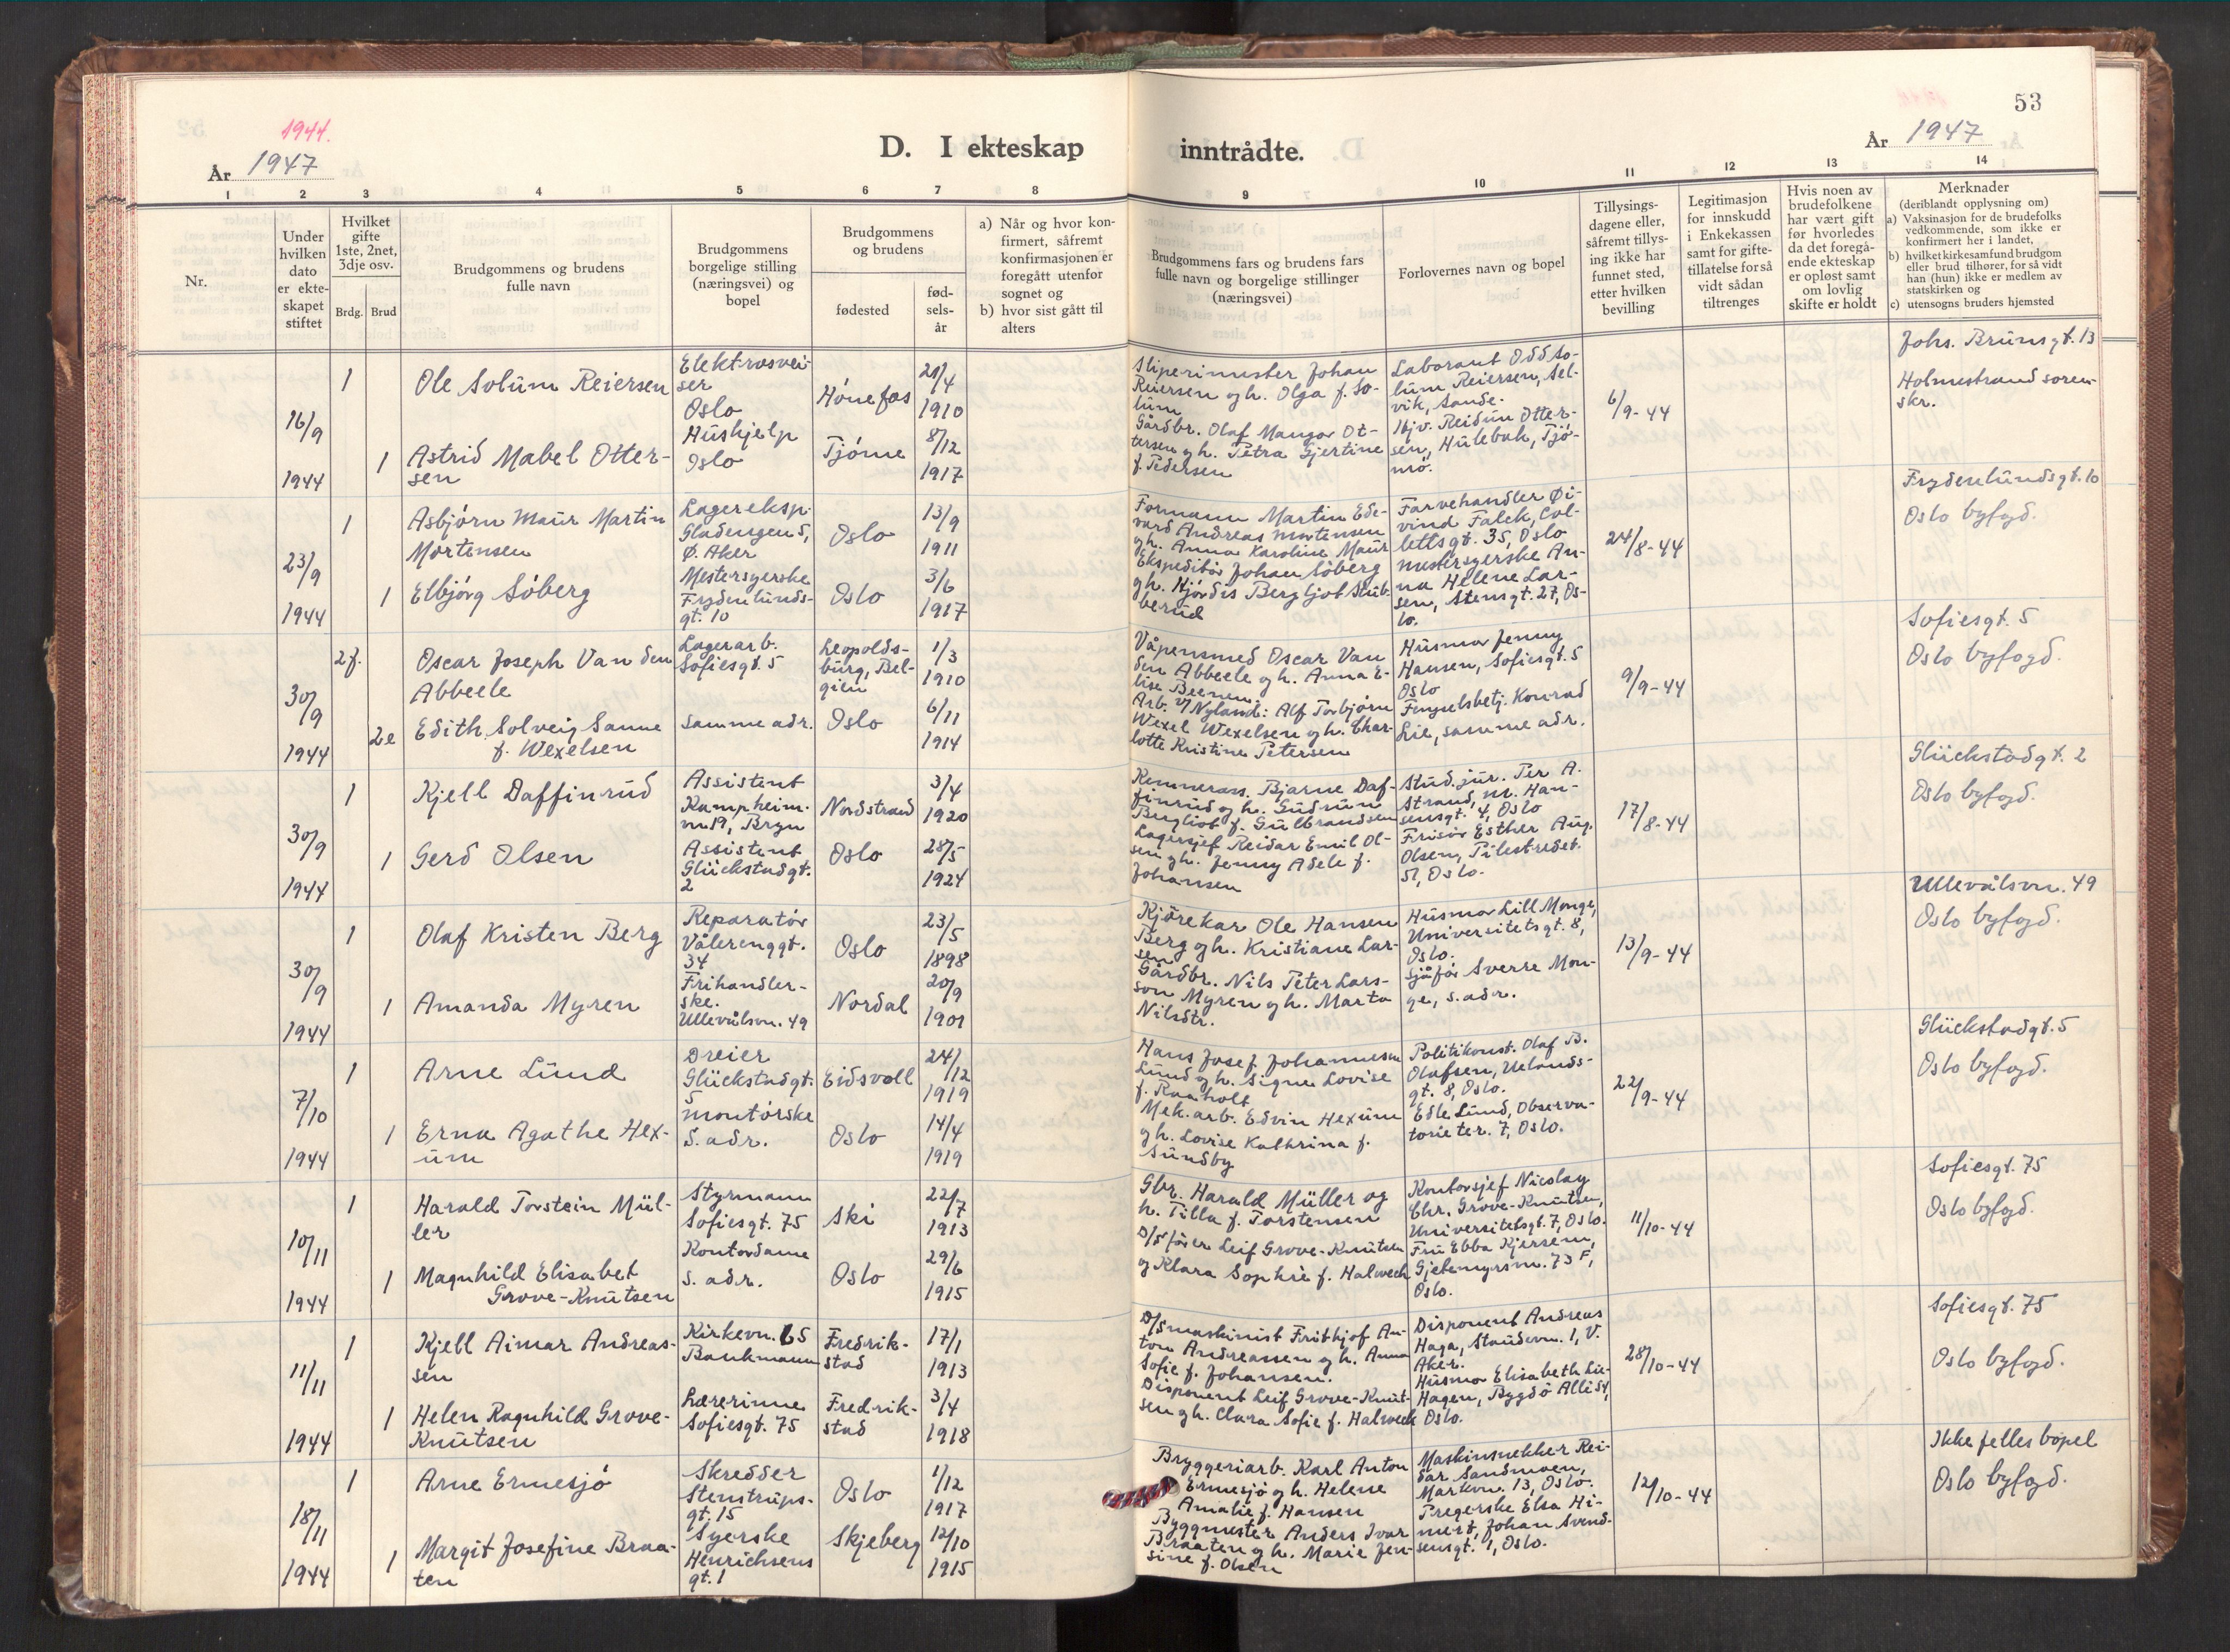 53
1944.
År 1947
D. I ekteskap inntrådte.
År 1947
1 2 3 4 5 6 7 8 9 10 11 12 13 14
Nr.
Under
hvilken
dato
er ekte-
skapet
stiftet
Hvilket
gifte
1ste, 2net,
3dje osv.
Brdg. Brud
Brudgommens og brudens
fulle navn
Brudgommens
borgelige stilling
(næringsvei) og
bopel
Brudgommens
og brudens
fødested
fød-
sels-
år
a) Når og hvor kon-
firmert, såfremt
konfirmasjonen er
foregått utenfor
sognet og
b) hvor sist gått til
alters
Brudgommens fars og brudens fars
fulle navn og borgelige stillinger
(næringsvei)
Forlovernes navn og bopel
Tillysings-
dagene eller,
såfremt tillys-
ing ikke har
funnet sted,
etter hvilken
bevilling
Legitimasjon
for innskudd
i Enkekassen
samt for gifte-
tillatelse for så
vidt sådan
tiltrenges
Hvis noen av
brudefolkene
har vært gift
før hvorledes
da det foregå-
ende ekteskap
er opløst samt
om lovlig
skifte er holdt
Merknader
(deriblandt opplysning om)
a) Vaksinasjon for de brudefolks
vedkommende, som ikke er
konfirmert her i landet,
b) hvilket kirkesamfund brudgom
eller brud tilhører, for så vidt
han (hun) ikke er medlem av
statskirken og
c) utensogns bruders hjemsted
16/9
1944
1
Ole Solum Reiersen
Elektrosvei-
ser
Oslo
Hönefos
21/4
1910
1
Astrid Mabel Otter-
sen
Hushjelp
Oslo
Tjöme
8/12
1917
Sliperimester Johan
Reiersen og h. Olga f. So-
lum
Gårdbr. Olaf Mangor Ot-
tersen og h. Petra Gjertine
f. Pedersen
Laborant Odd So-
lum Reiersen, Sel-
vik, Sande.
Hjv. Reidun Otter-
sen, Hulebak, Tjö-
mö.
6/9-44
Johs. Brunsgt. 13
Holmestrand soren-
skr.
23/9
1944
1
Asbjörn Maur Martin
Mortensen
Lagereksp.
Gladengen 5,
Ø. Aker
Oslo
13/9
1911
1
Elbjörg Söberg
Mestersyerske
Frydenlunds-
gt. 10
Oslo
3/6
1917
Formann Martin Ede-
vard Andreas Mortensen
og h. Anna Karoline Maur
Ekspeditör Johan Söberg
og h. Hjördis Bergljot Stub-
berud
Farvehandler Øi-
vind Falck, Col-
lettsgt. 35, Oslo
Mestersyerske An-
na Helene Lar-
sen, Stensgt. 27, Os-
lo.
24/8-44
Frydenlundsgt. 10
Oslo byfogd.
30/9
1944
2f.
Oscar Joseph Van den
Abbeele
Lagerarb.
Sofiesgt. 5
Leopolds-
burg, Bel-
gien
1/3
1910
2e
Edith Solveig Sanne
f. Wexelsen
samme adr.
Oslo
6/11
1914
Våpensmed Oscar Van
den Abbeele og h. Anna E-
lise Beenen.
Arb. v/ Nyland: Alf Torbjörn
Wexel Wexelsen og h. Char-
lotte Kristine Petersen
Husmor Jenny
Hansen, Sofiesgt. 5
Oslo
Fengselsbetj. Konrad
Lie, samme adr.
9/9-44
Sofiesgt. 5
Oslo byfogd.
30/9
1944
1
Kjell Daffinrud
Assistent
Kampheim-
vn. 19, Bryn
Nordstrand
3/4
1920
1
Gerd Olsen
Assistent
Glückstadgt.
2
Oslo
28/5
1924
Kemnerass. Bjarne Daf-
finrud og h. Gudrun
Bergliot f. Gulbrandsen
Lagersjef Reidar Emil Ol-
sen og h. Jenny Adele f.
Johansen
Stud. jur. Per A.
Strand, M. Han-
sensgt. 4, Oslo
Frisör Esther Aug.
Olsen, Pilestredet.
51, Oslo.
17/8-44
Glückstadgt. 2
Oslo byfogd.
30/9
1944
1
Olaf Kristen Berg
Reparatör
Vålerenggt.
34
Oslo
23/5
1898
1
Amanda Myren
Frihandler-
ske.
Ullevålsvn. 49
Nordal
20/9
1901
Kjörekar Ole Hansen
Berg og h. Kristiane Lar-
sen
Gårdbr. Nils Peter Lars-
son Myren og h. Marta
Nilsdtr.
Husmor Lill Monge,
Universitetsgt. 8,
Oslo.
Sjåför Sverre Mon-
ge, s. adr.
13/9-44
Ullevålsvn. 49
Oslo byfogd.
7/10
1944
1
Arne Lund
Dreier
Glückstadgt.
5
Eidsvoll
24/12
1919
1
Erna Agathe Hex-
um
Montörske
s. adr.
Oslo
14/4
1919
Hans Josef Johannesen
Lund og h. Signe Lovise
f. Raaholt
Mek. arb. Edvin Hexum
og h. Lovise Kathrina f.
Sundby
Politikonst. Olaf B.
Olafsen, Uelands-
gt. 8, Oslo.
Edle Lund, Observa-
torie ter. 7, Oslo.
22/9-44
Glückstadgt. 5
Oslo byfogd.
10/11
1944
1
Harald Torstein Mül-
ler
Styrmann
Sofiesgt. 75
Ski
22/7
1913
1
Magnhild Elisabet
Grove-Knutsen
Kontordame
s. adr.
Oslo
29/6
1915
Gbr. Harald Müller og
h. Tilla f. Torstensen
D/S förer Leif Grove-Knutsen
og Klara Sophie f. Halweck
Kontorsjef Nicolay
Chr. Grove-Knutsen,
Universitetsgt. 7, Oslo.
Fru Ebba Kjersem,
Gjetemyrsvn. 73 F,
Oslo.
11/10-44
Sofiesgt. 75
Oslo byfogd.
11/11
1944
1
Kjell Aimar Andreas-
sen
Kirkevn. 65
Bankmann
Fredrik-
stad
17/1
1913
1
Helen Ragnhild Grove-
Knutsen
Lærerinne
Sofiesgt. 75
Fredrik-
stad
3/4
1918
D/Smaskinist Frithjof An-
ton Andreassen og h. Anna
Sofie f. Johansen.
Disponent Leif Grove-Knut-
sen og h. Clara Sofie f. Halweck
Disponent Andreas
Haga, Staudevn. 1, V.
Aker.
Husmor Elisabeth Lie-
Hagen, Bygdö Allé 54,
Oslo.
28/10-44
Sofiesgt. 75
Oslo byfogd.
18/11
1944
1
Arne Ermesjö
Skredder
Stenstrups-
gt. 15
Oslo
1/12
1917
1
Margit Josefine Braa-
ten
Syerske
Henrichsens
gt. 1
Skjeberg
12/10
1915
Bryggeriarb. Karl Anton
Ermesjö og h. Helene
Amalie f. Hansen
Byggmester Anders Ivar
Braaten og h. Marie Jen-
sine f. Olsen
Maskinsnekker Rei-
dar Sandmoen,
Markvn. 13, Oslo.
Pregerske Elsa Hi-
mert, Johan Svend-
sensgt. 1, Oslo.
12/10-44
Ikke felles bopel
Oslo byfogd.